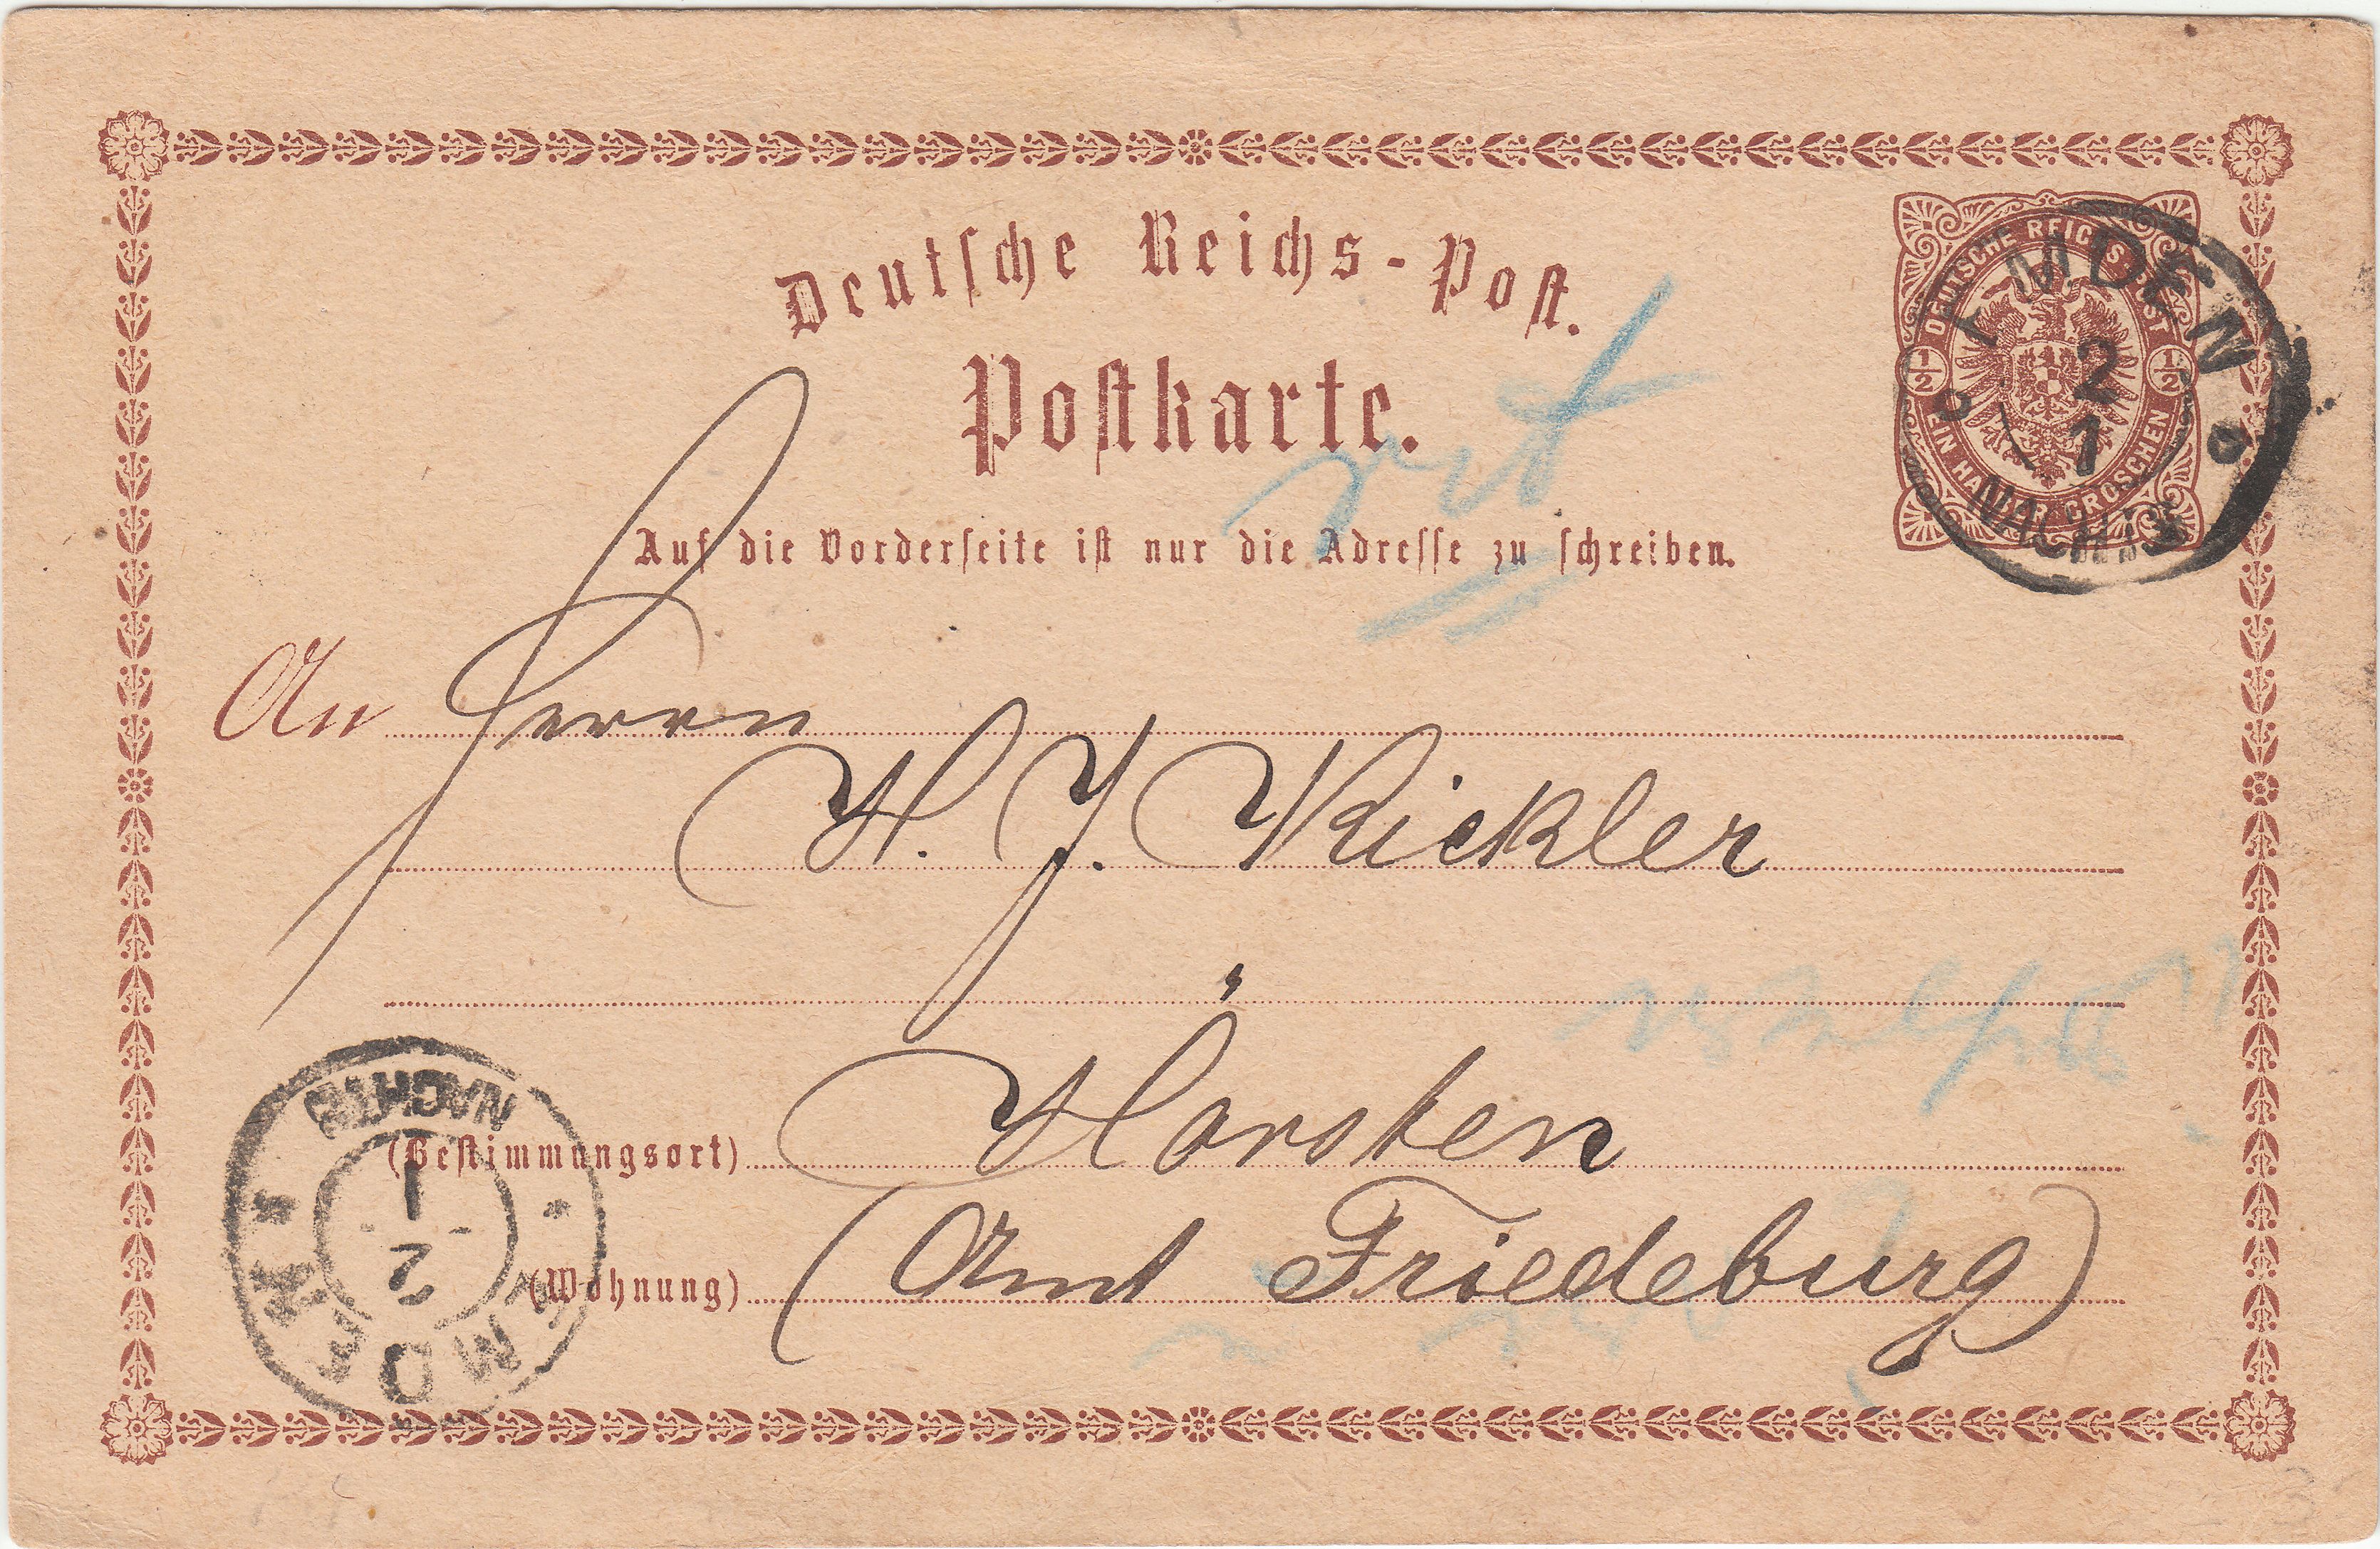 Deutsche Reichs-Post.
Postkarte.
DEUTSCHE REICHS POST
1/2 1/2
EIN HALBER GROSCHEN
EMDEN
2
1
NACHTS
Auf die Vorderseite ist nur die Adresse zu schreiben.
An Herrn
H. J. Kickler
Horsten
(Bestimmungsort)
(Amt Friedeburg)
(Wohnung)
NACHTS
1
2
EMDEN